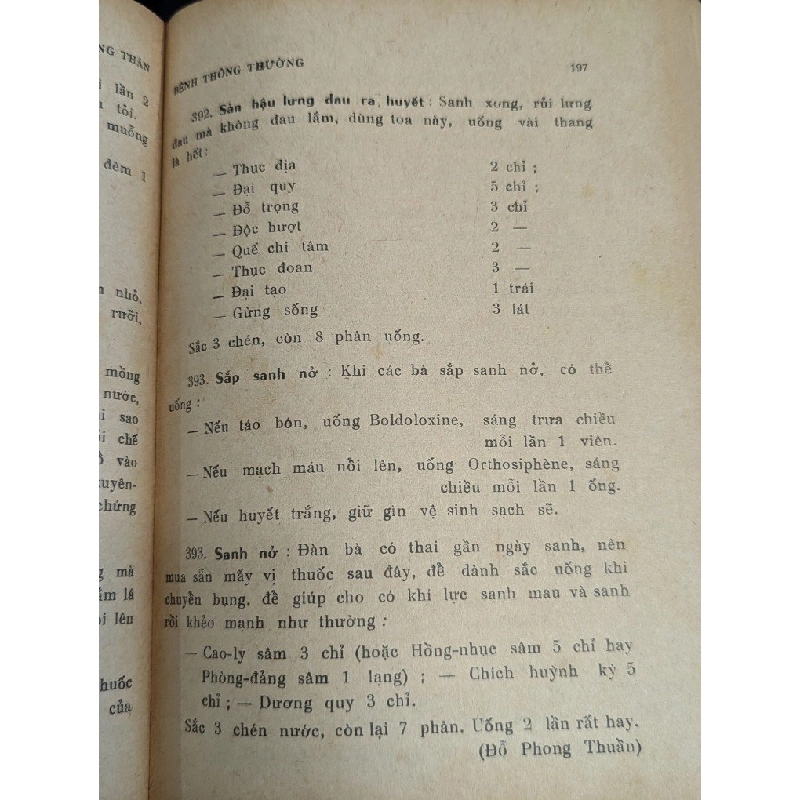 NG THÂN
i lần 2
tôi.
muỗng
đêm 1
nhỏ,
rưỡi,
mồng
nước,
i sao
chế
vào
uyên-
chứng
g mà
ầm lá
i lên
huốc
của
BỆNH THÔNG THƯỜNG 197
392. Sản hậu lưng đau ra huyết : Sanh xong, rồi lưng
đau mà không đau lắm, dùng toa này, uống vài thang
là hết:
— Thục địa 2 chỉ ;
— Đại quy 5 chỉ ;
— Đỗ trọng 3 chỉ
— Độc hượt 2 —
— Quế chi tâm 2 —
— Thục đoan 3 —
— Đại tạo 1 trái
— Gừng sống 3 lát
Sắc 3 chén, còn 8 phân uống.
393. Sắp sanh nở : Khi các bà sắp sanh nở, có thể
uống :
— Nếu táo bón, uống Boldoloxine, sáng trưa chiều
mỗi lần 1 viên.
— Nếu mạch máu nồi lên, uống Orthosiphène, sáng
chiều mỗi lần 1 ống.
— Nếu huyết trắng, giữ gìn vệ sinh sạch sẽ.
393. Sanh nở : Đàn bà có thai gần ngày sanh, nên
mua sẵn mấy vị thuốc sau đây, để dành sắc uống khi
chuyền bụng, đề giúp cho có khí lực sanh mau và sanh
rồi khỏe mạnh như thường :
— Cao-ly sâm 3 chỉ (hoặc Hồng-nhục sâm 5 chỉ hay
Phòng-đảng sâm 1 lạng) ; — Chích huỳnh kỳ 5
chỉ ; — Dương quy 3 chỉ.
Sắc 3 chén nước, còn lại 7 phân. Uống 2 lần rất hay.
(Đỗ Phong Thuần)